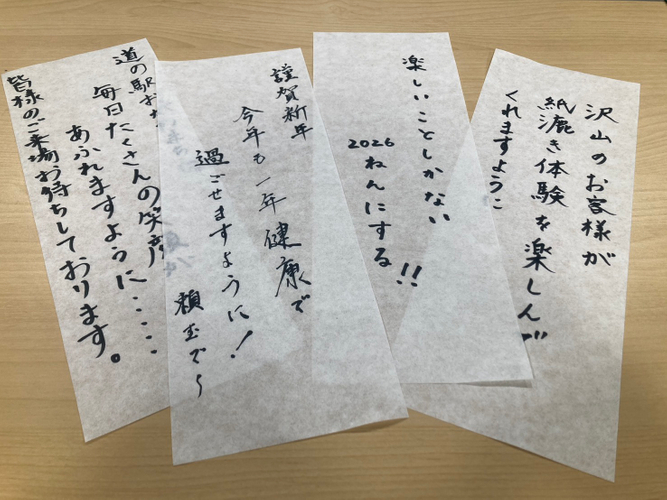 沢山のお客様が
紙漉き体験を楽しんで
くれますように
楽しいことしかない
2026ねんにする!!
謹賀新年
今年も一年健康で
過ごせますように!
道の駅お
毎日たくさんの笑顔が
あふれますように……
皆様のご来場お待ちしております。